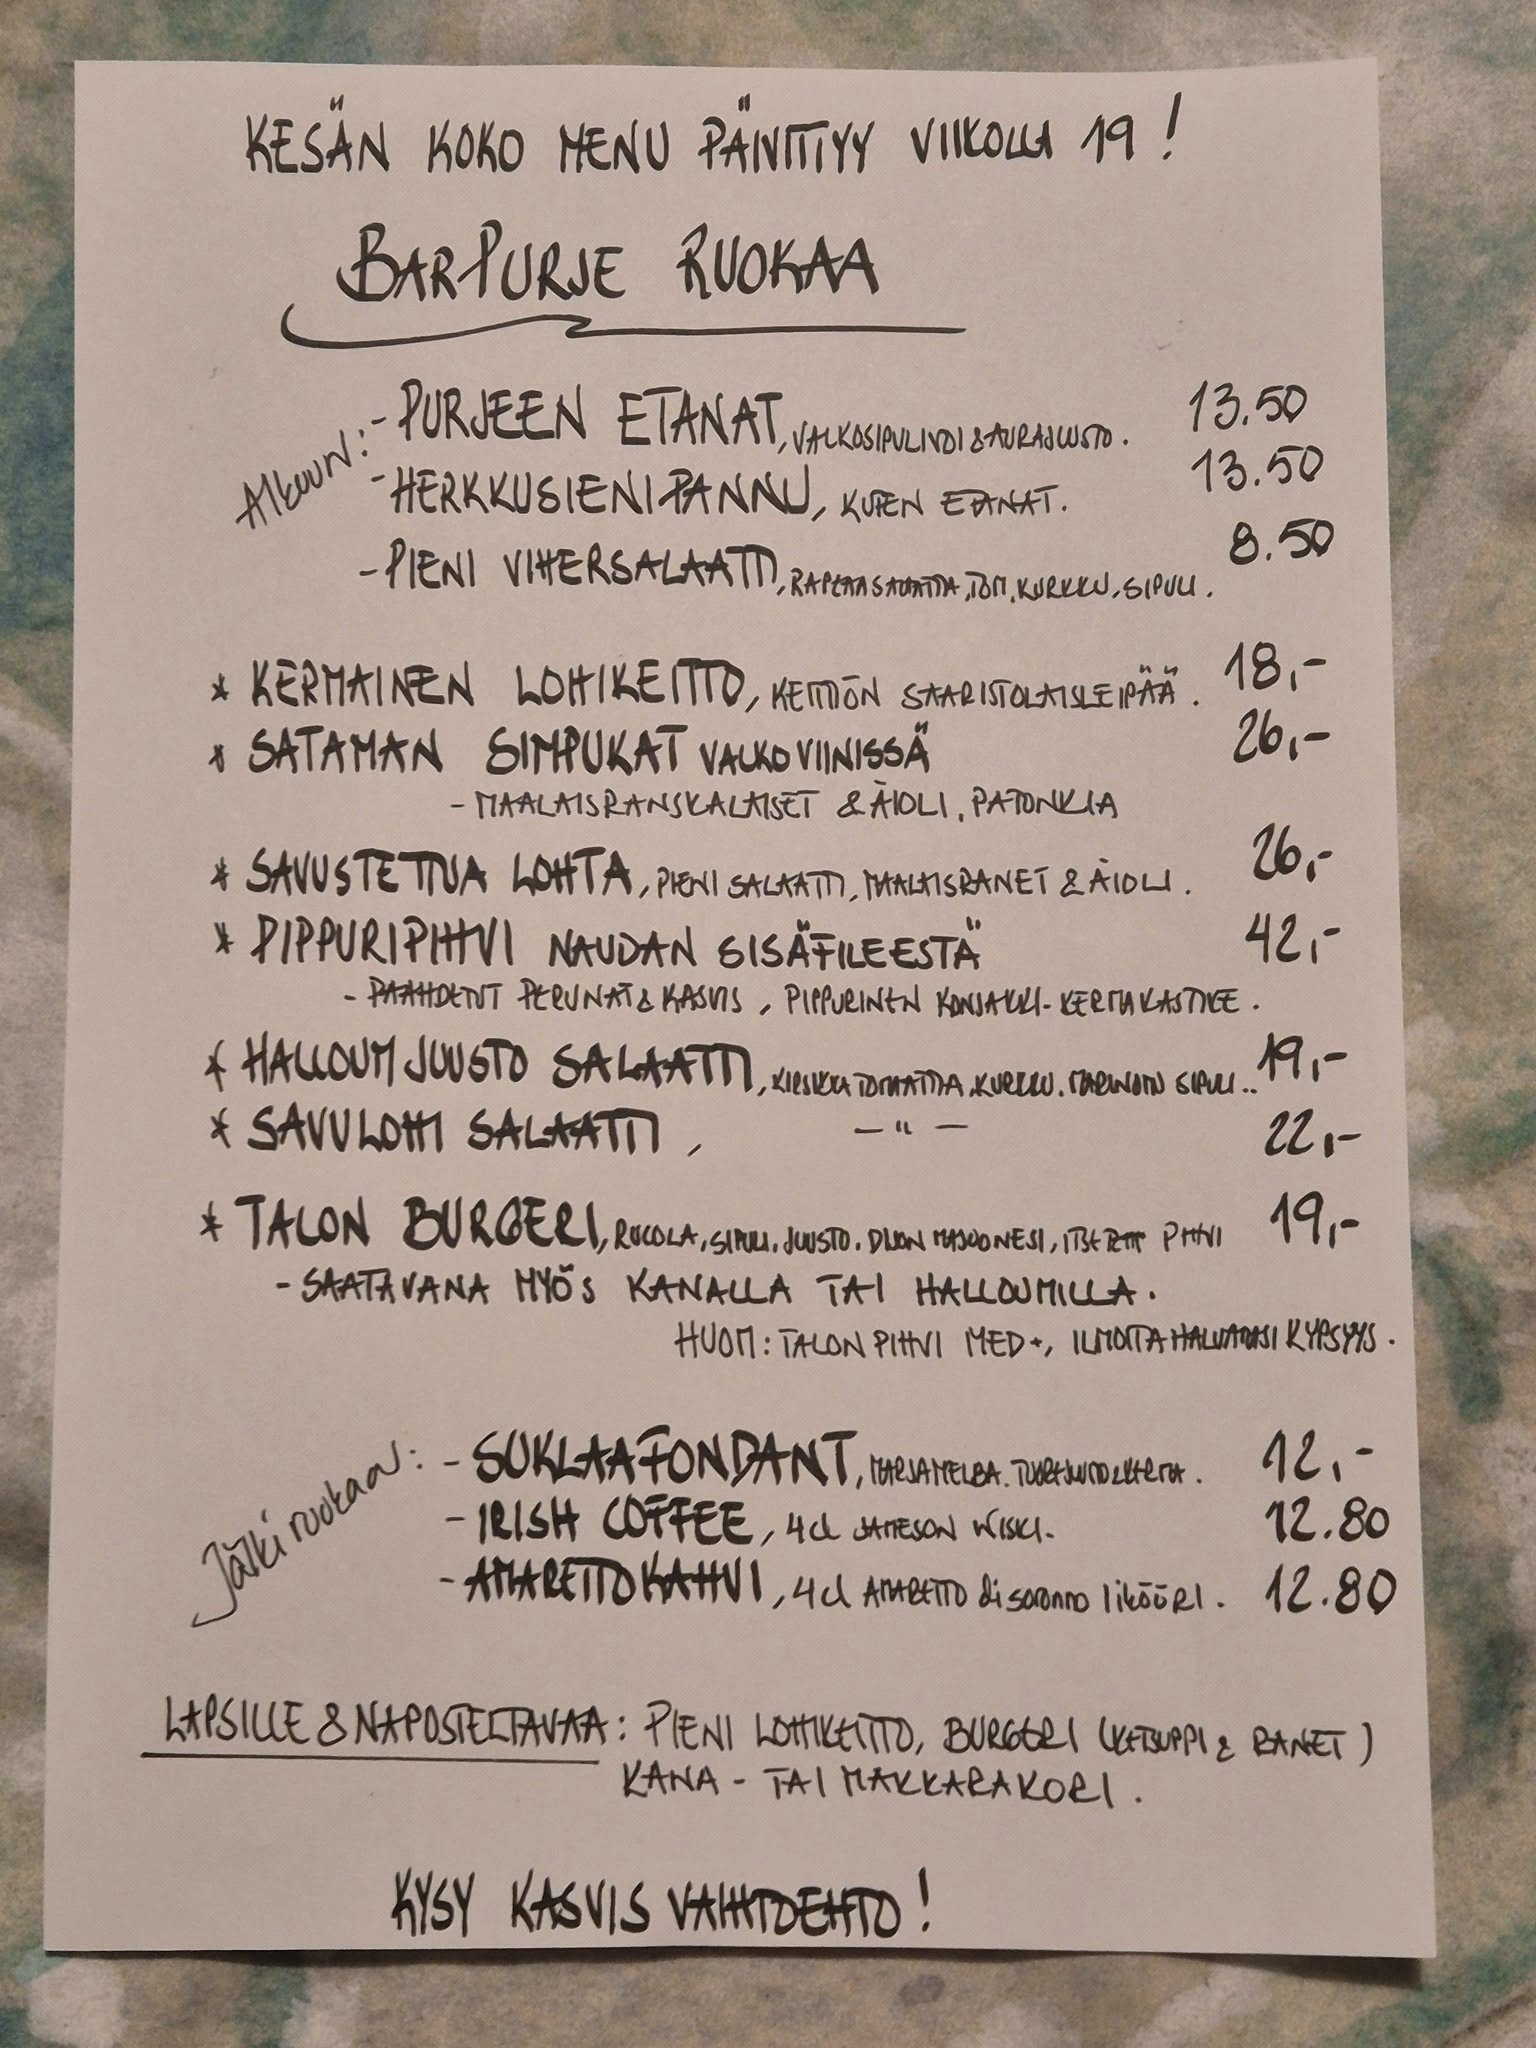 KESÄN KOKO MENU PÄIVITTYY VIIKOLLA 19!
BARPURJE RUOKAA
Alkuun:
- PURJEEN ETANAT, VALKOSIPULIVOI & AURAJUUSTO. 13.50
- HERKKUSIENIPANNU, KUTEN ETANAT. 13.50
- PIENI VIHERSALAATTI, RAPEAA SALAATTIA, TOM, KURKKU, SIPULI. 8.50
* KERMAINEN LOHIKEITTO, KEITTIÖN SAARISTOLAISLEIPÄÄ. 18,-
* SATAMAN SIMPUKAT VALKOVIINISSÄ 26,-
- MAALAISRANSKALAISET & ÄIOLI, PATONKIA
* SAVUSTETTUA LOHTA, PIENI SALAATTI, MAALAISRANET & ÄIOLI. 26,-
* PIPPURIPIHVI NAUDAN SISÄFILEESTÄ 42,-
- PAAHDETUT PERUNAT & KASVIS, PIPPURINEN KONJAKKI-KERMAKASTIKE.
* HALLOUMIJUUSTO SALAATTI, KIRSIKKATOMAATTIA, KURKKU, MARINOITU SIPULI.. 19,-
* SAVULOHI SALAATTI, — " — 22,-
* TALON BURGERI, RUCOLA, SIPULI, JUUSTO, DIJON MAJOONESI, PIHVI 19,-
- SAATAVANA MYÖS KANALLA TAI HALLOUMILLA.
HUOM: TALON PIHVI MED+, ILMOITA HALUAMASI KYPSYYS.
Jälkiruokaa:
- SUKLAAFONDANT, MARJAMELBA, TUOREJUUSTOKERMA. 12,-
- IRISH COFFEE, 4cl JAMESON WISKI. 12.80
- AMARETTOKAHVI, 4cl AMARETTO disaronno likööRI. 12.80
LAPSILLE & NAPOSTELTAVAA: PIENI LOHIKEITTO, BURGERI (KETSUPPI & RANET)
KANA- TAI MAKKARAKORI.
KYSY KASVIS VAIHTOEHTO!